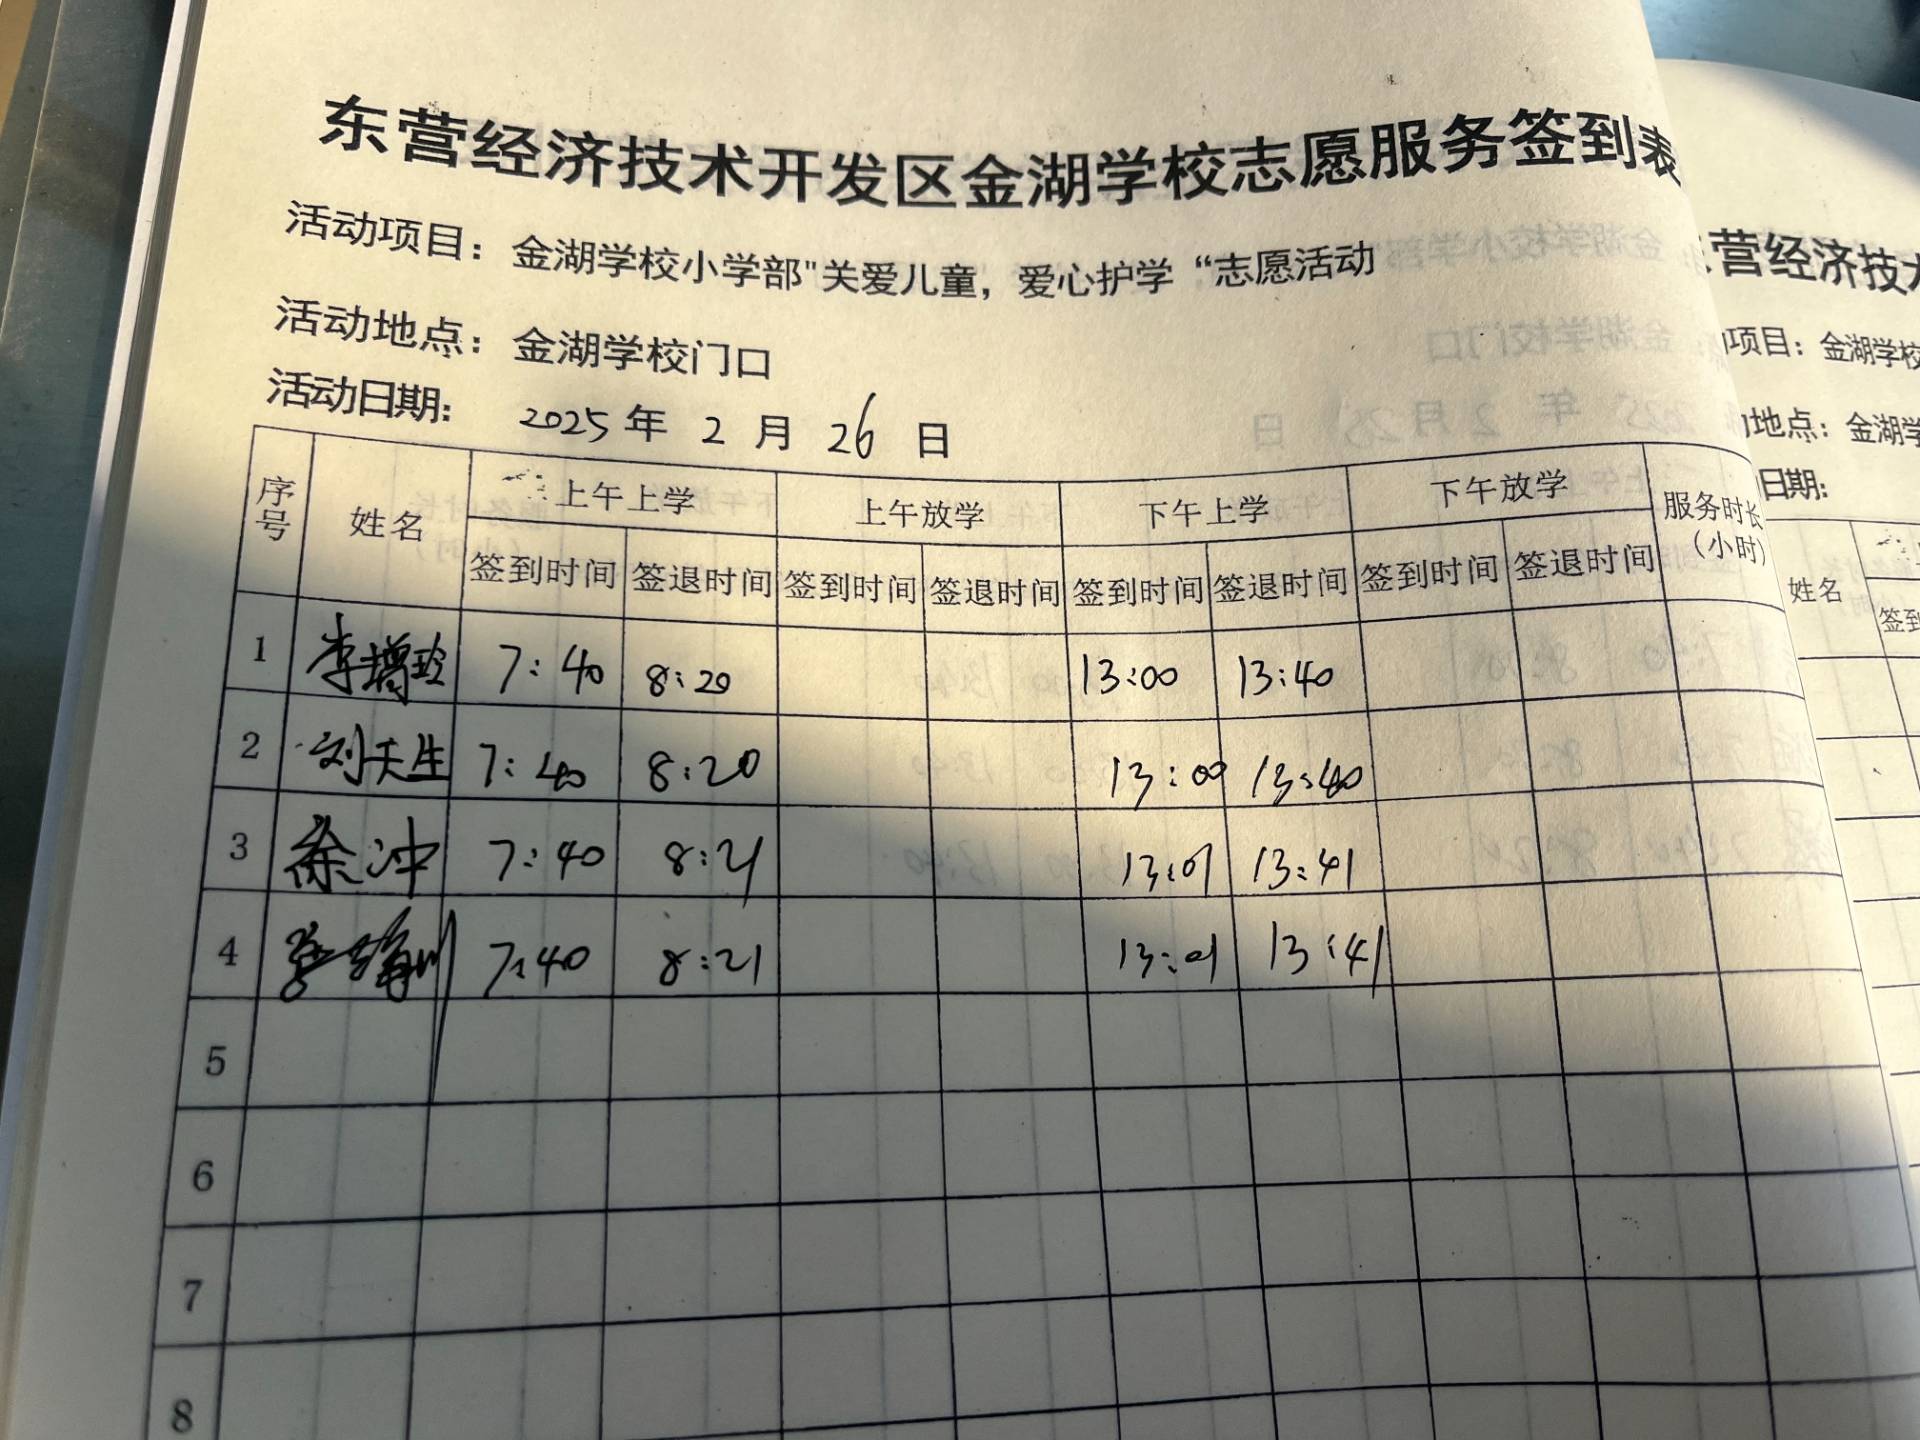 东营经济技术开发区金湖学校志愿服务签到表
活动项目：金湖学校小学部"关爱儿童，爱心护学“志愿活动
活动地点：金湖学校门口
活动日期：2025年2月26日
序号 姓名 上午上学 上午放学 下午上学 下午放学 服务时长（小时）
签到时间 签退时间 签到时间 签退时间 签到时间 签退时间 签到时间 签退时间
1 李增玲 7:40 8:20 13:00 13:40
2 刘天生 7:40 8:20 13:00 13:40
3 徐冲 7:40 8:21 13:01 13:41
4 7:40 8:21 13:01 13:41
5
6
7
8
营经济技
项目：金湖学校
地点：金湖学
日期：
姓名
签到